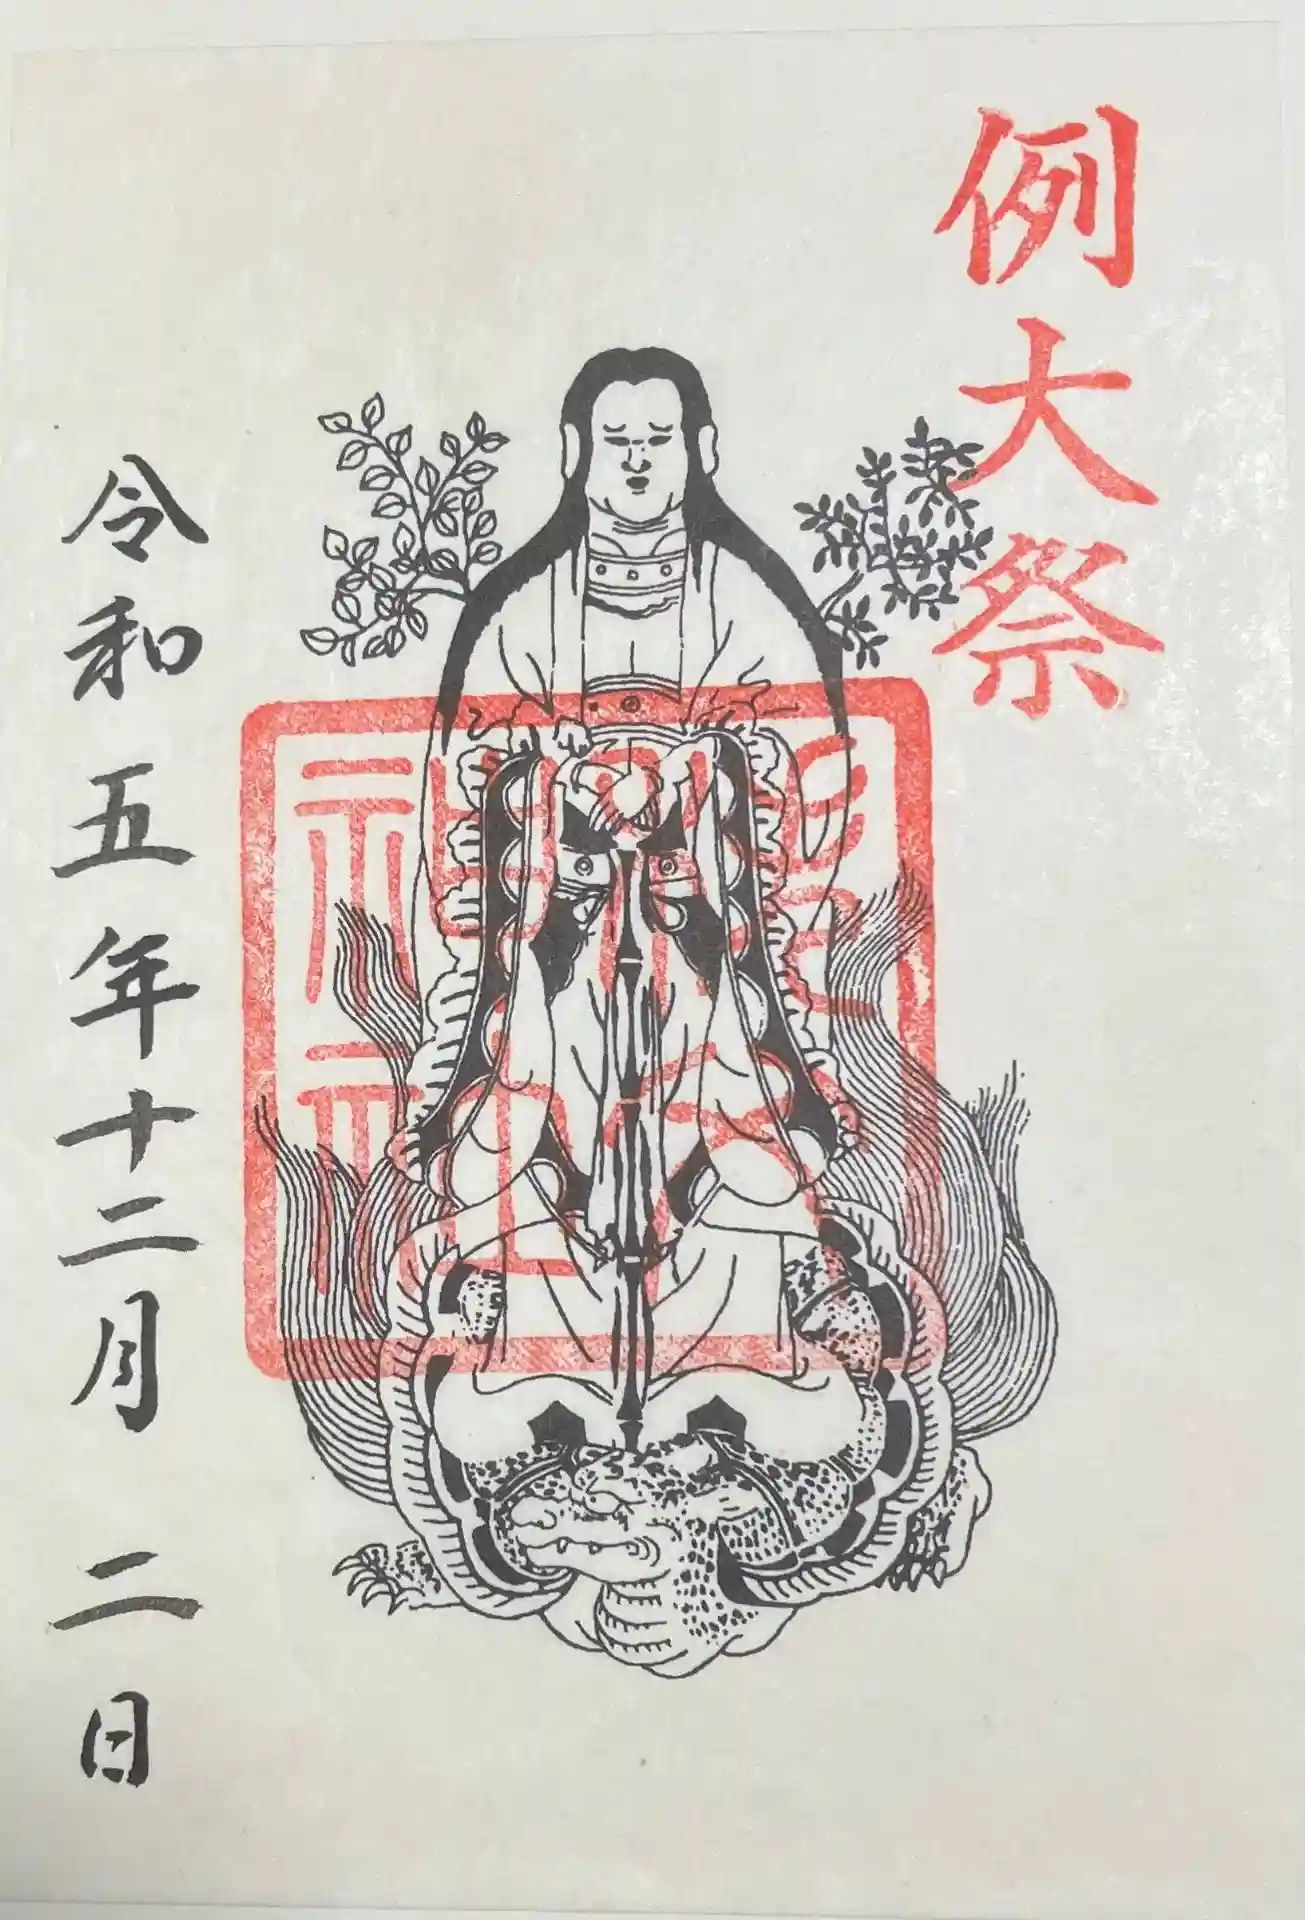 例大祭
令和五年十二月二日